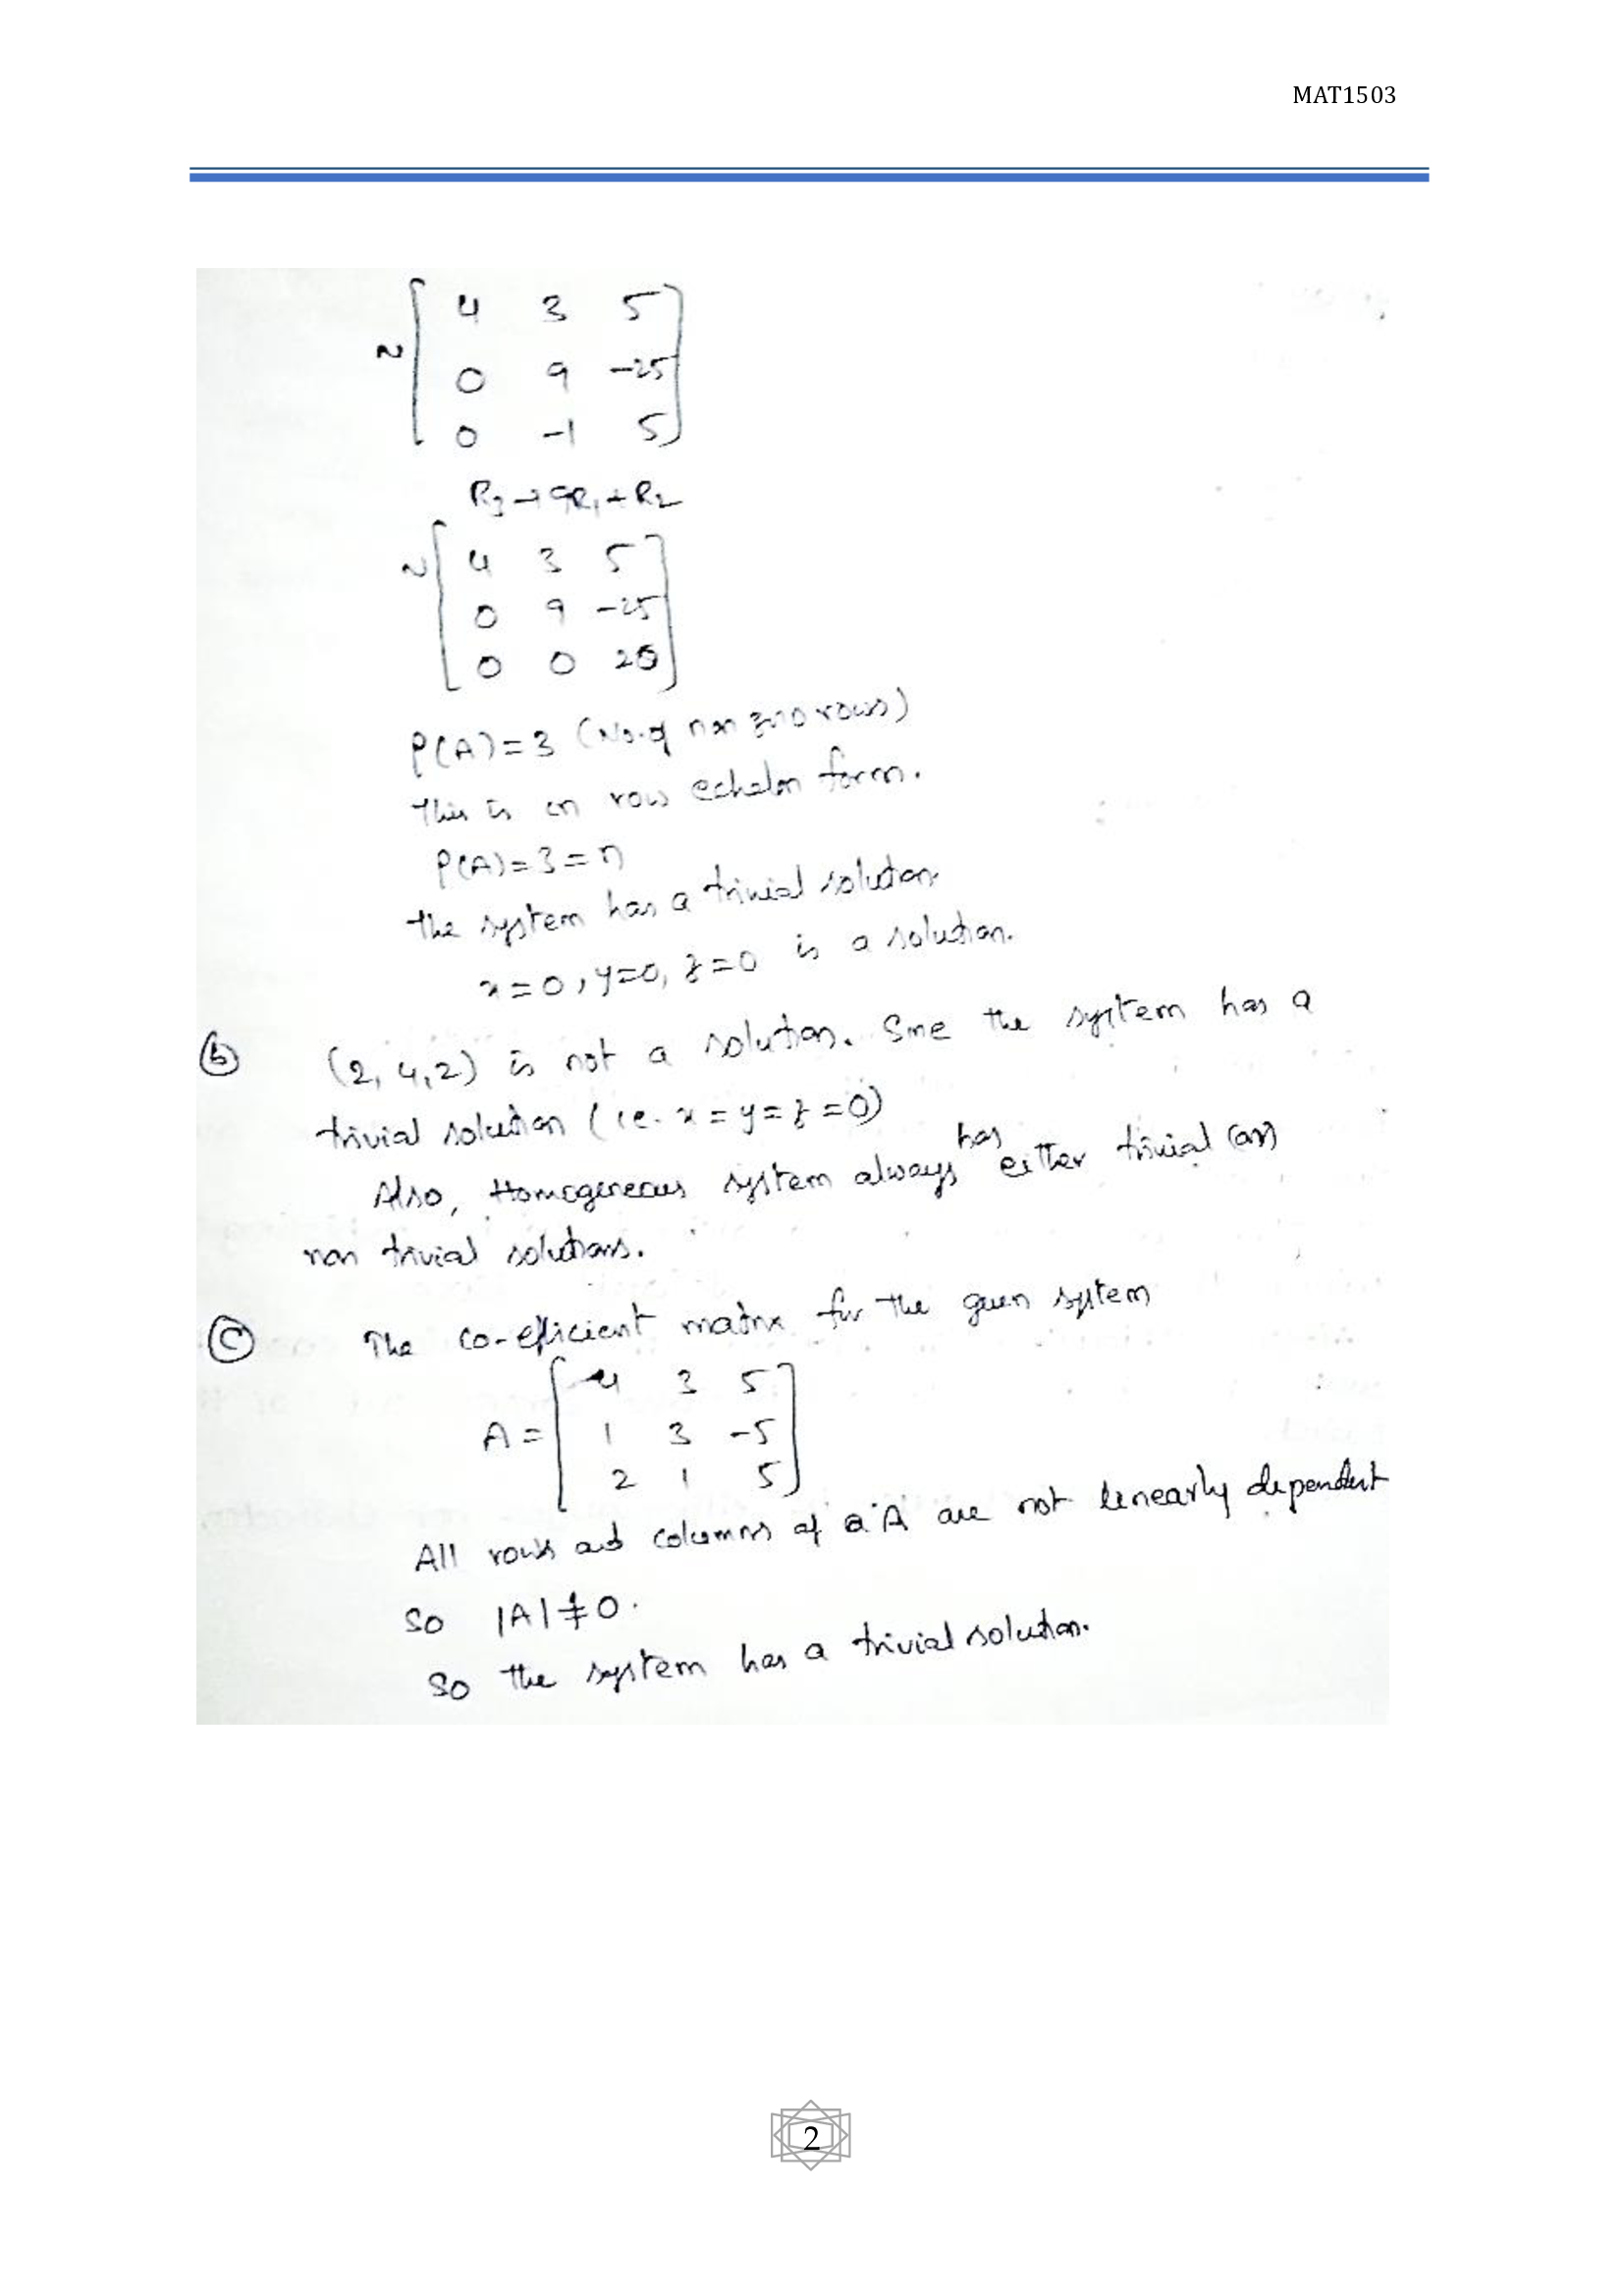 MAT1503
~ [ 4 3 5
0 9 -25
0 -1 5 ]
R3 → 9R1 + R2
~ [ 4 3 5
0 9 -25
0 0 20 ]
ρ(A) = 3 (No. of non zero rows)
This is in row echelon form.
ρ(A) = 3 = n
The system has a trivial solution.
x = 0, y = 0, z = 0 is a solution.
(b) (2, 4, 2) is not a solution. Sine the system has a
trivial solution (i.e. x = y = z = 0)
Also, Homogeneous system always has either trivial (or)
non trivial solutions.
(C) The co-efficient matrix for the given system
A = [ 4 3 5
1 3 -5
2 1 5 ]
All rows and columns of 'A' are not linearly dependent
So |A| ≠ 0.
So the system has a trivial solution.
2